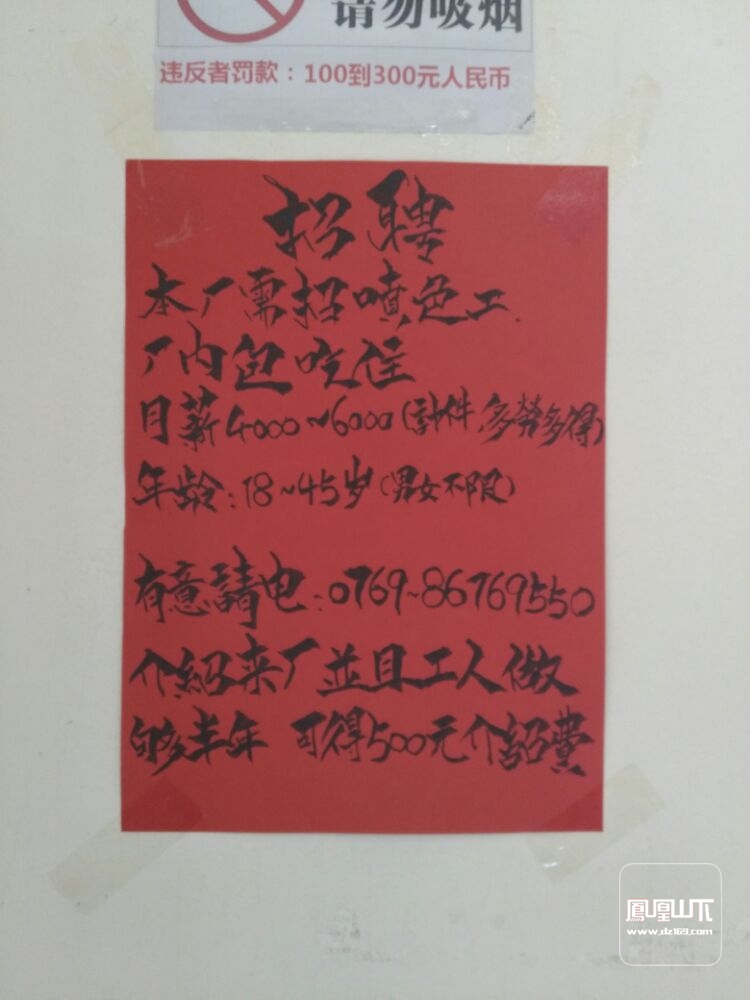 请勿吸烟
违反者罚款：100到300元人民币
招聘
本厂需招噴色工.
厂内包吃住
月薪4000~6000(計件.多勞多得)
年龄:18~45岁(男女不限)
有意請电:0769-86769550
介紹来厂並且工人做
够半年 可得500元介紹費
鳳凰山下
www.dz169.com